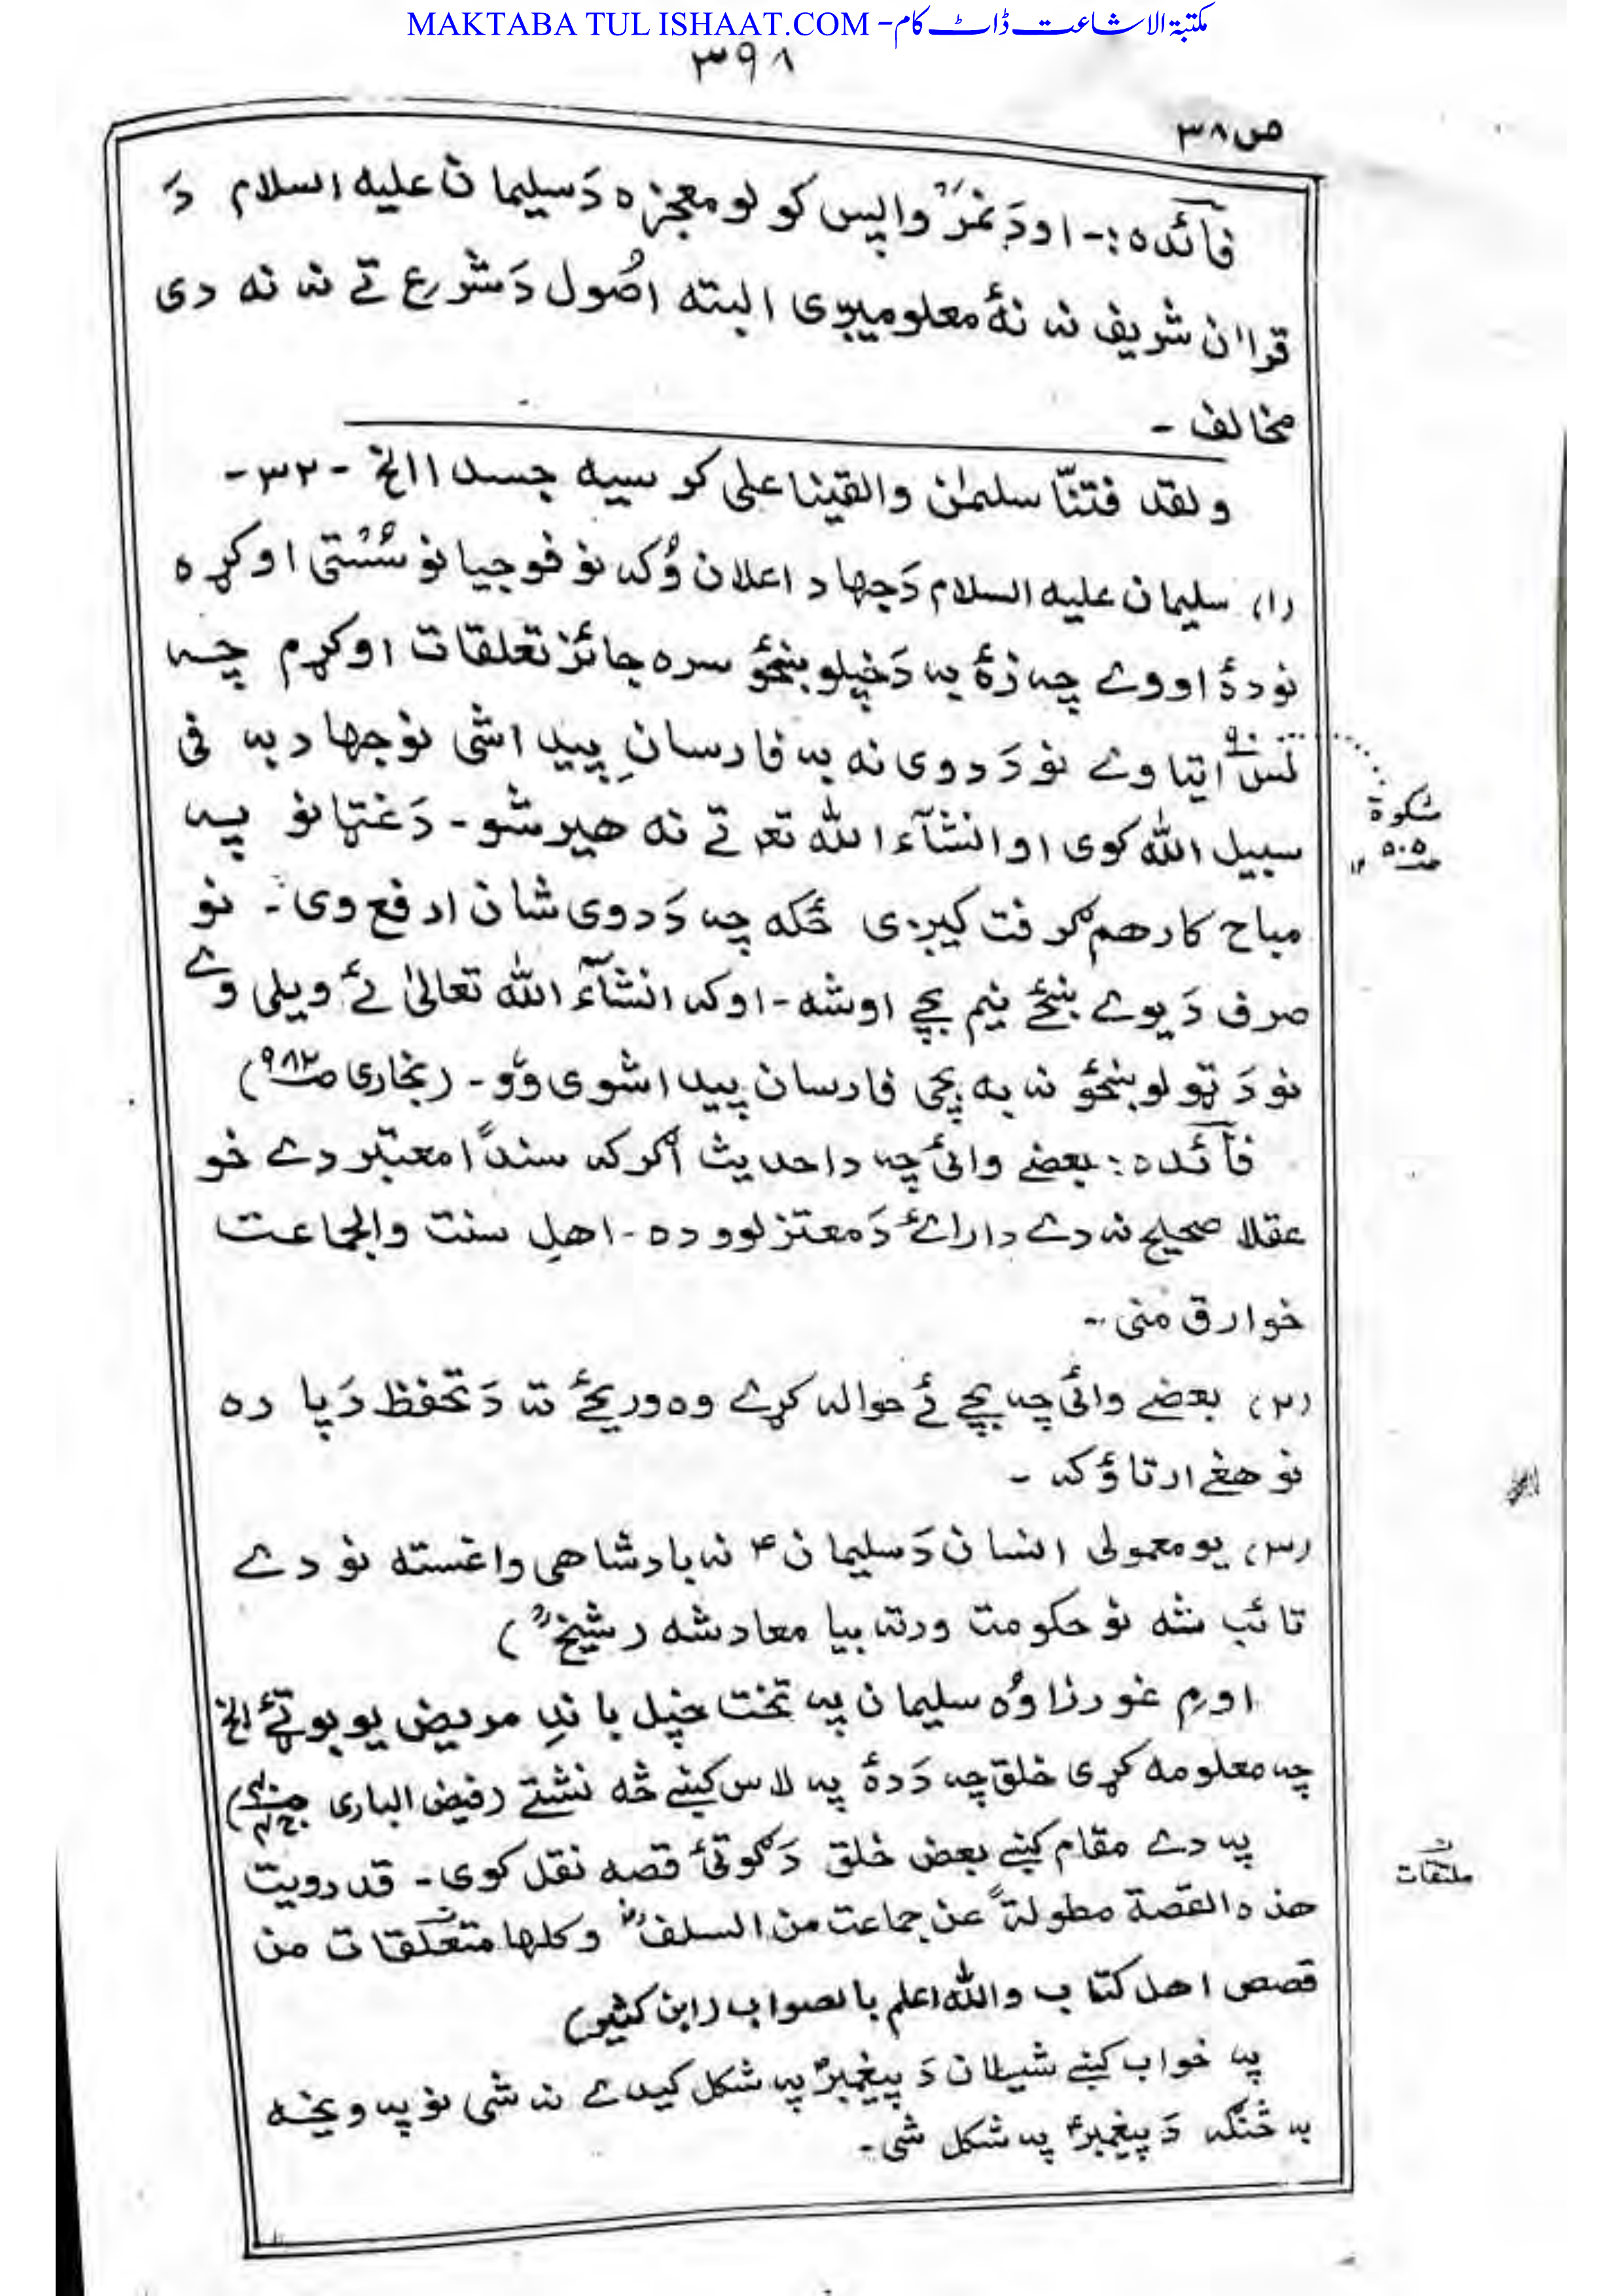 MAKTABA TUL ISHAAT.COM - مکتبۃ الاشاعت ڈاٹ کام
۳۹۸
ص۳۸
فآئدہ :- او دَ نمرَ واپس کولو معجزہ دَ سلیمان علیہ السلام دَ
قراٰن شریف نہ نۂ معلومیږی البتہ اصُول دَ شرع تے نہ نہ دی
مخالف -
ولقد فتنّا سلیمٰن والقینا علی کرسیہ جسدا الخ -۳۲-
(۱) سلیمان علیہ السلام دَ جهاد اعلان وُکہ نو فوجیانو سُستی اوکړہ
نو دۂ اووے چہ زۂ بہ دَ خپلو ښځو سرہ جائز تعلقات اوکړم چہ
لس اتیاوے نو دَ دوی نہ بہ فارسانِ پیدا شی نو جهاد بہ فی
سبیل اللہ کوی او انشآء اللہ تعہ تے نہ هیر شو - دَ غټانو پہ
مباح کار هم گرفت کیږی ځکہ چہ دَ دوی شان ارفع وی - نو
صرف دَ یوے ښځے نیم بچے اوشہ - او کہ انشآء اللہ تعالیٰ ئے ویلی وے
نو دَ ټولو ښځو نہ بہ بچی فارسان پیدا شوی وو - (بخاری صـ۹۸۲)
فآئدہ : بعضے وائی چہ دا حدیث اگرکہ سنداً معتبر دے خو
عقلا صحیح نہ دے دا رائے دَ معتزلوو دہ - اهلِ سنت والجماعت
خوارق منی -
(۲) بعضے وائی چہ بچے ئے حوالہ کړے وہ وریځے تہ دَ تحفظ دَ پارہ
نو هغے ارتاؤ کہ -
(۳) یو معمولی انسان دَ سلیمانؑ نہ بادشاهی واغستہ نو دے
تائب شہ نو حکومت ورتہ بیا معاد شہ (شیخؒ)
اورم غورزاوُہ سلیمان پہ تخت خپل باندِ مریض یو بوټے الخ
چہ معلومہ کړی خلق چہ دَ دۂ پہ لاس کښے څہ نشتے (فیض الباری
پہ دے مقام کښے بعض خلق دَ گوتئ قصہ نقل کوی - قد رویت
هذہ القصة مطولةً عن جماعت من السلفؓ وکلها متعلقات من
قصص اهل کتاب واللہ اعلم بالصواب (ابن کثیر)
پہ خواب کښے شیطان دَ پیغمبرؑ پہ شکل کیدے نہ شی نو پہ ویخہ
بہ څنگہ دَ پیغمبرؑ پہ شکل شی -
مشکوة
صـ۵۰۵ ۱۲
ملتقات